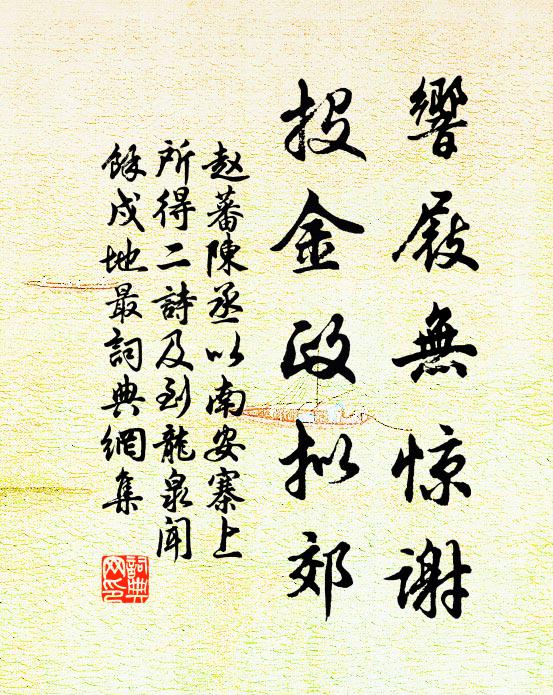 響屐無惊謝
投金政拟郊
赵蕃陳丞以南安寨上
所得二詩及到龍泉聞
餘戍地最詞典網集
詞典网印